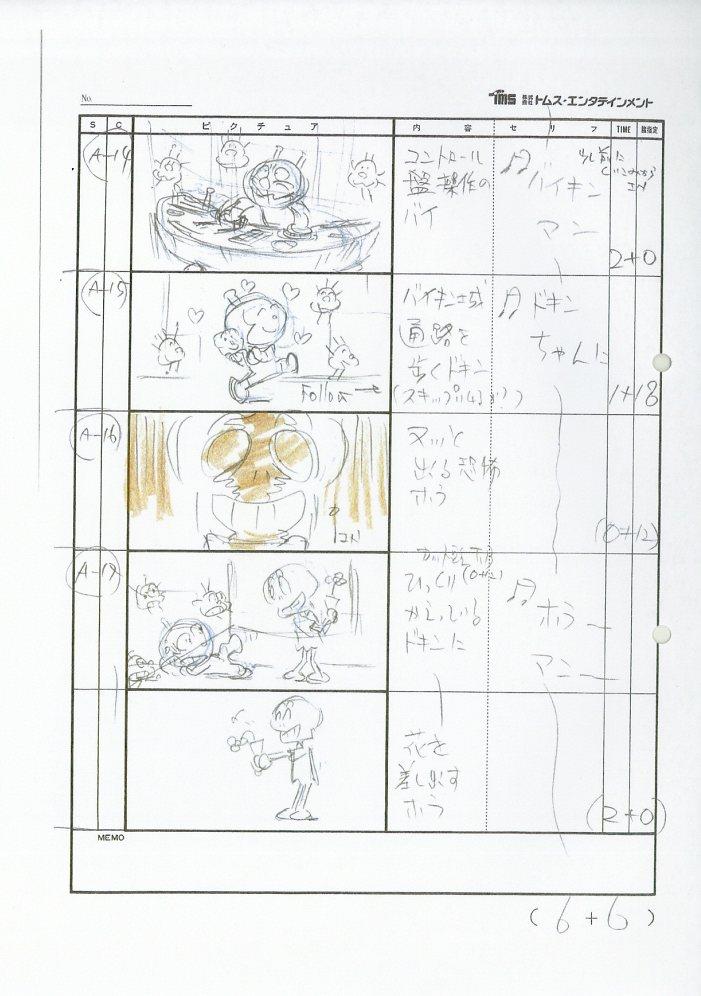 No.
TMS 株式会社 トムス・エンタテインメント
S C ピクチュア 内容 セリフ TIME
A-14
コントロール
盤操作の
バイ
♫バイキン
マン
2+0
A-15
バイキン城
通路を
歩くドキン
Follow →
♫ドキン
ちゃんに
1+18
A-16
ヌッと
出る恐怖
ホラ
(0+12)
A-17
ひっくり(0+12)
かえっている
ドキンに
♫ホラー
マンー
花を
差し出す
ホラ
(2+0)
MEMO
(6+6)